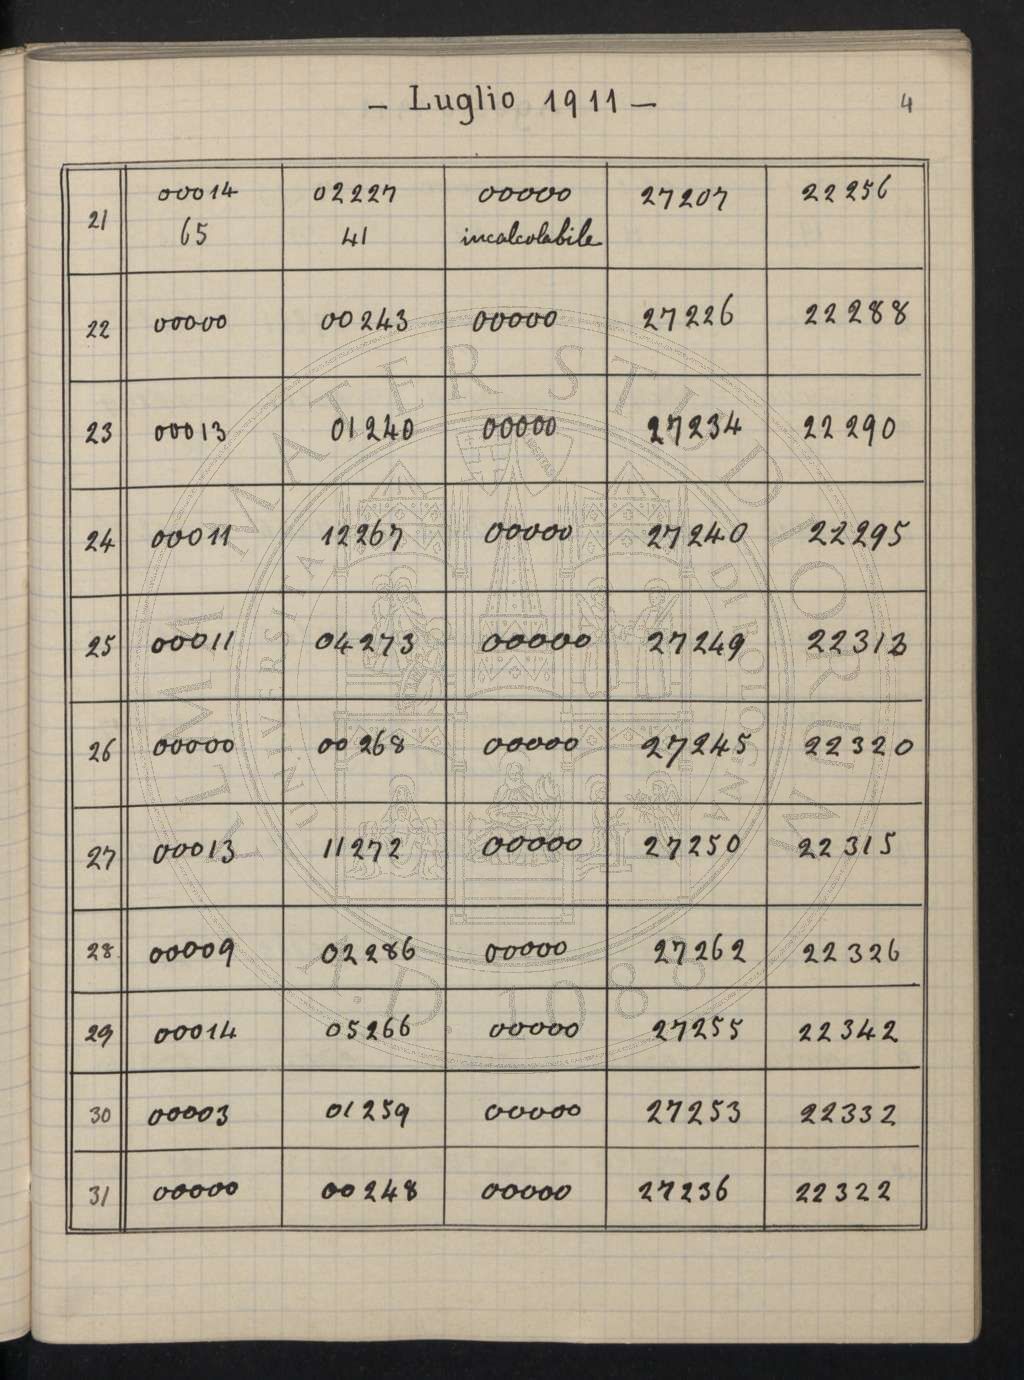 - Luglio 1911 -
4
21 00014 02227 00000 27207 22256
65 41 incalcolabile
22 00000 00243 00000 27226 22288
23 00013 01240 00000 27234 22290
24 00011 12267 00000 27240 22295
25 00011 04273 00000 27249 22313
26 00000 00268 00000 27245 22320
27 00013 11272 00000 27250 22315
28 00009 02286 00000 27262 22326
29 00014 05266 00000 27255 22342
30 00003 01259 00000 27253 22332
31 00000 00248 00000 27236 22322
ALMA MATER STUDIORUM
UNIVERSITÀ DI BOLOGNA
A.D. 1088